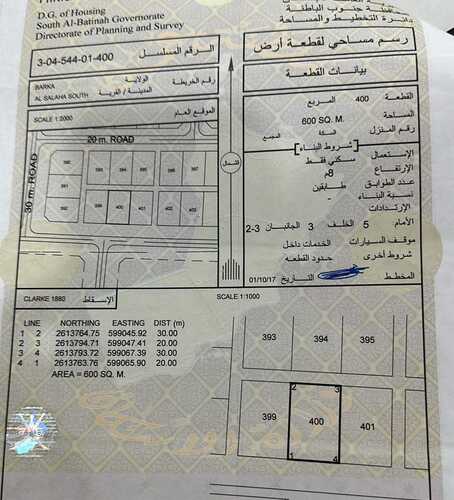 D.G. of Housing
South Al-Batinah Governorate
Directorate of Planning and Survey
دائرة التخطيط والمساحة
الرقم المسلسل
3-04-544-01-400
رسم مساحي لقطعة أرض
بيانات القطعة
BARKA
الولاية
رقم الخريطة
AL SALAHA SOUTH
المدينة / القرية
SCALE 1:2000
الموقع العام
القطعة 400 المربع
المساحة 600 SQ. M.
رقم المنزل السكة المجمع
شروط البناء
الإستعمال سكني فقط
الإرتفاع 8م
عدد الطوابق طابقين
نسبة البناء -
الإرتدادات
الأمام 5 الخلف 3 الجانبان 2-3
موقف السيارات الخدمات داخل
شروط أخرى حدود القطعه
المخطط التاريخ 01/10/17
20 m. ROAD
30 m. ROAD
الشمال
399 400 401 402
CLARKE 1880
الإسقاط
SCALE 1:1000
LINE NORTHING EASTING DIST (m)
1 2 2613764.75 599045.92 30.00
2 3 2613794.71 599047.41 20.00
3 4 2613793.72 599067.39 30.00
4 1 2613763.76 599065.90 20.00
AREA = 600 SQ. M.
393 394 395
2 3
399 400 401
1 4